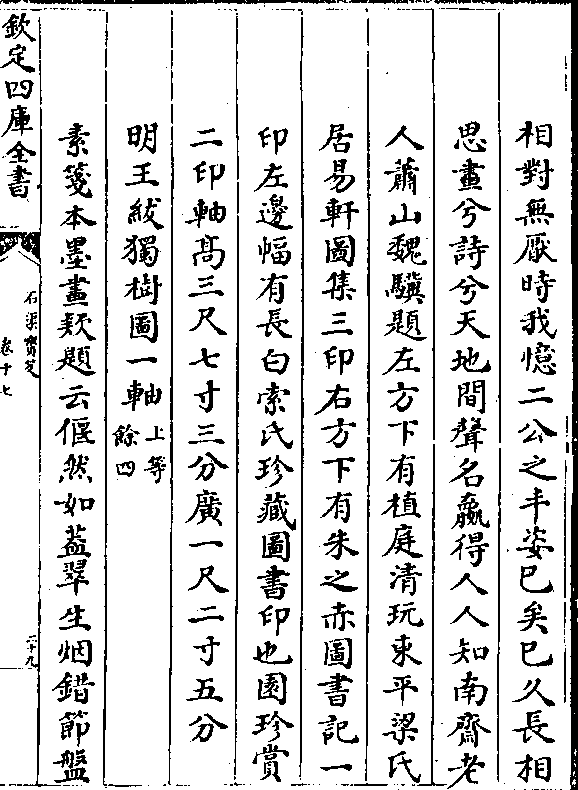 相對無厭時我憶二公之丰姿已矣已久長相
思畫兮詩兮天地間聲名贏得人人知南齋老
人蕭山魏驥題左方下有植庭清玩東平梁氏
居易軒圖集三印右方下有朱之赤圖書記一
印左邊幅有長白索氏珍藏圖書印也園珍賞
二印軸髙三尺七寸三分廣一尺二寸五分
明王紱獨樹圖一軸上等
餘四
素箋本墨畫欵題云偃然如葢翠生烟錯節盤
欽定四庫全書
石渠寳笈
卷十七
二十九